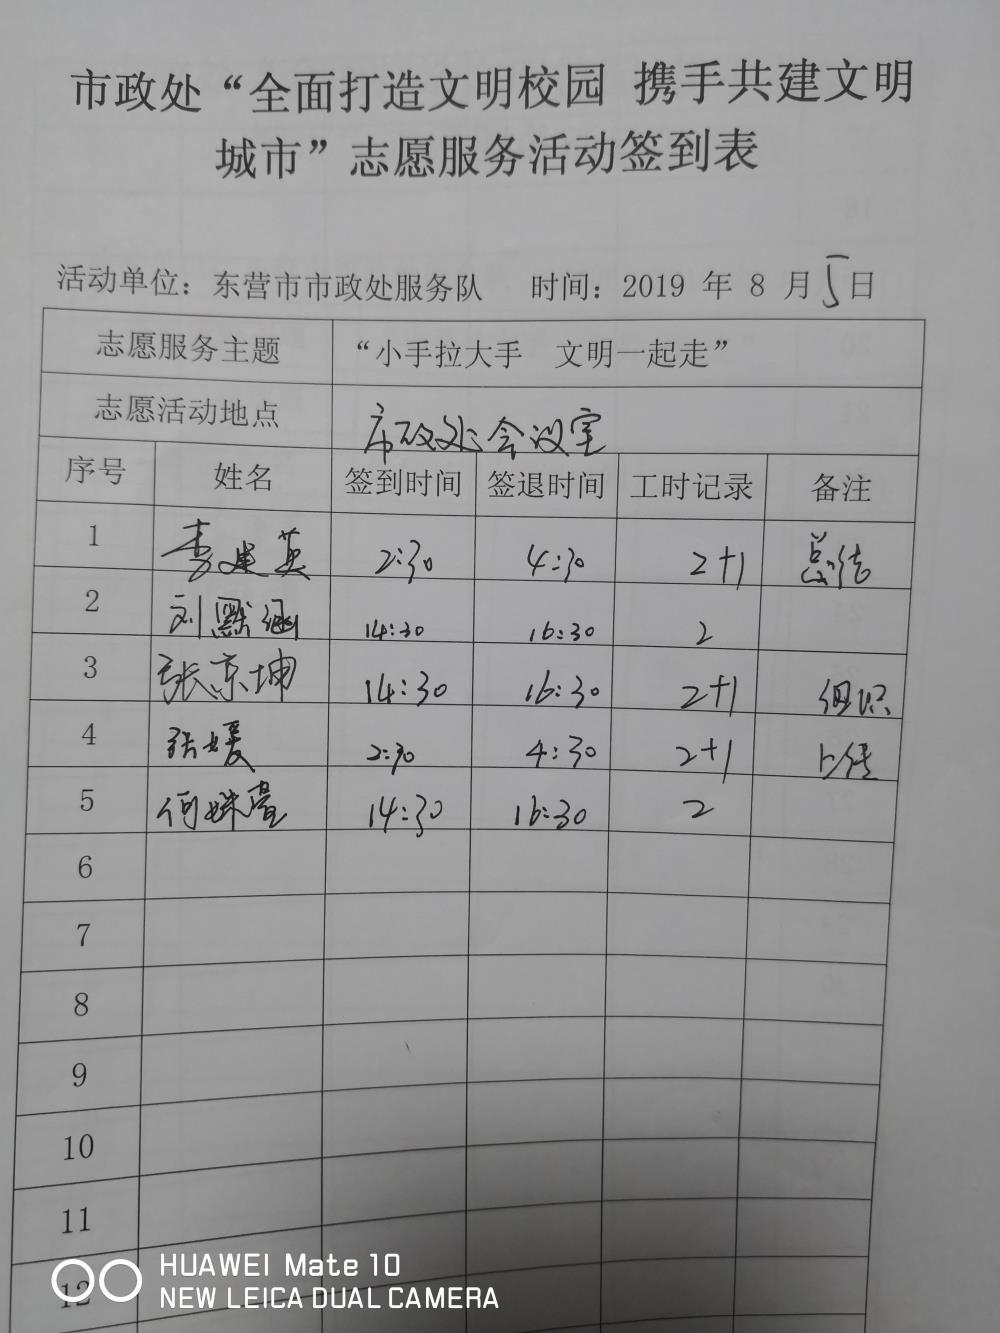 市政处“全面打造文明校园 携手共建文明
城市”志愿服务活动签到表
活动单位：东营市市政处服务队 时间：2019 年 8 月 5 日
志愿服务主题 “小手拉大手 文明一起走”
志愿活动地点 市政处会议室
序号 姓名 签到时间 签退时间 工时记录 备注
1 李建英 2:30 4:30 2+1 总结
2 刘默涵 14:30 16:30 2
3 张京坤 14:30 16:30 2+1 组织
4 张媛 2:30 4:30 2+1 上传
5 何姝 14:30 16:30 2
6
7
8
9
10
11
12
HUAWEI Mate 10
NEW LEICA DUAL CAMERA